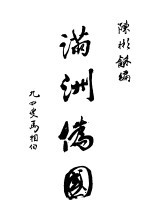 陳彬龢編
滿洲僞國
九四叟馬相伯